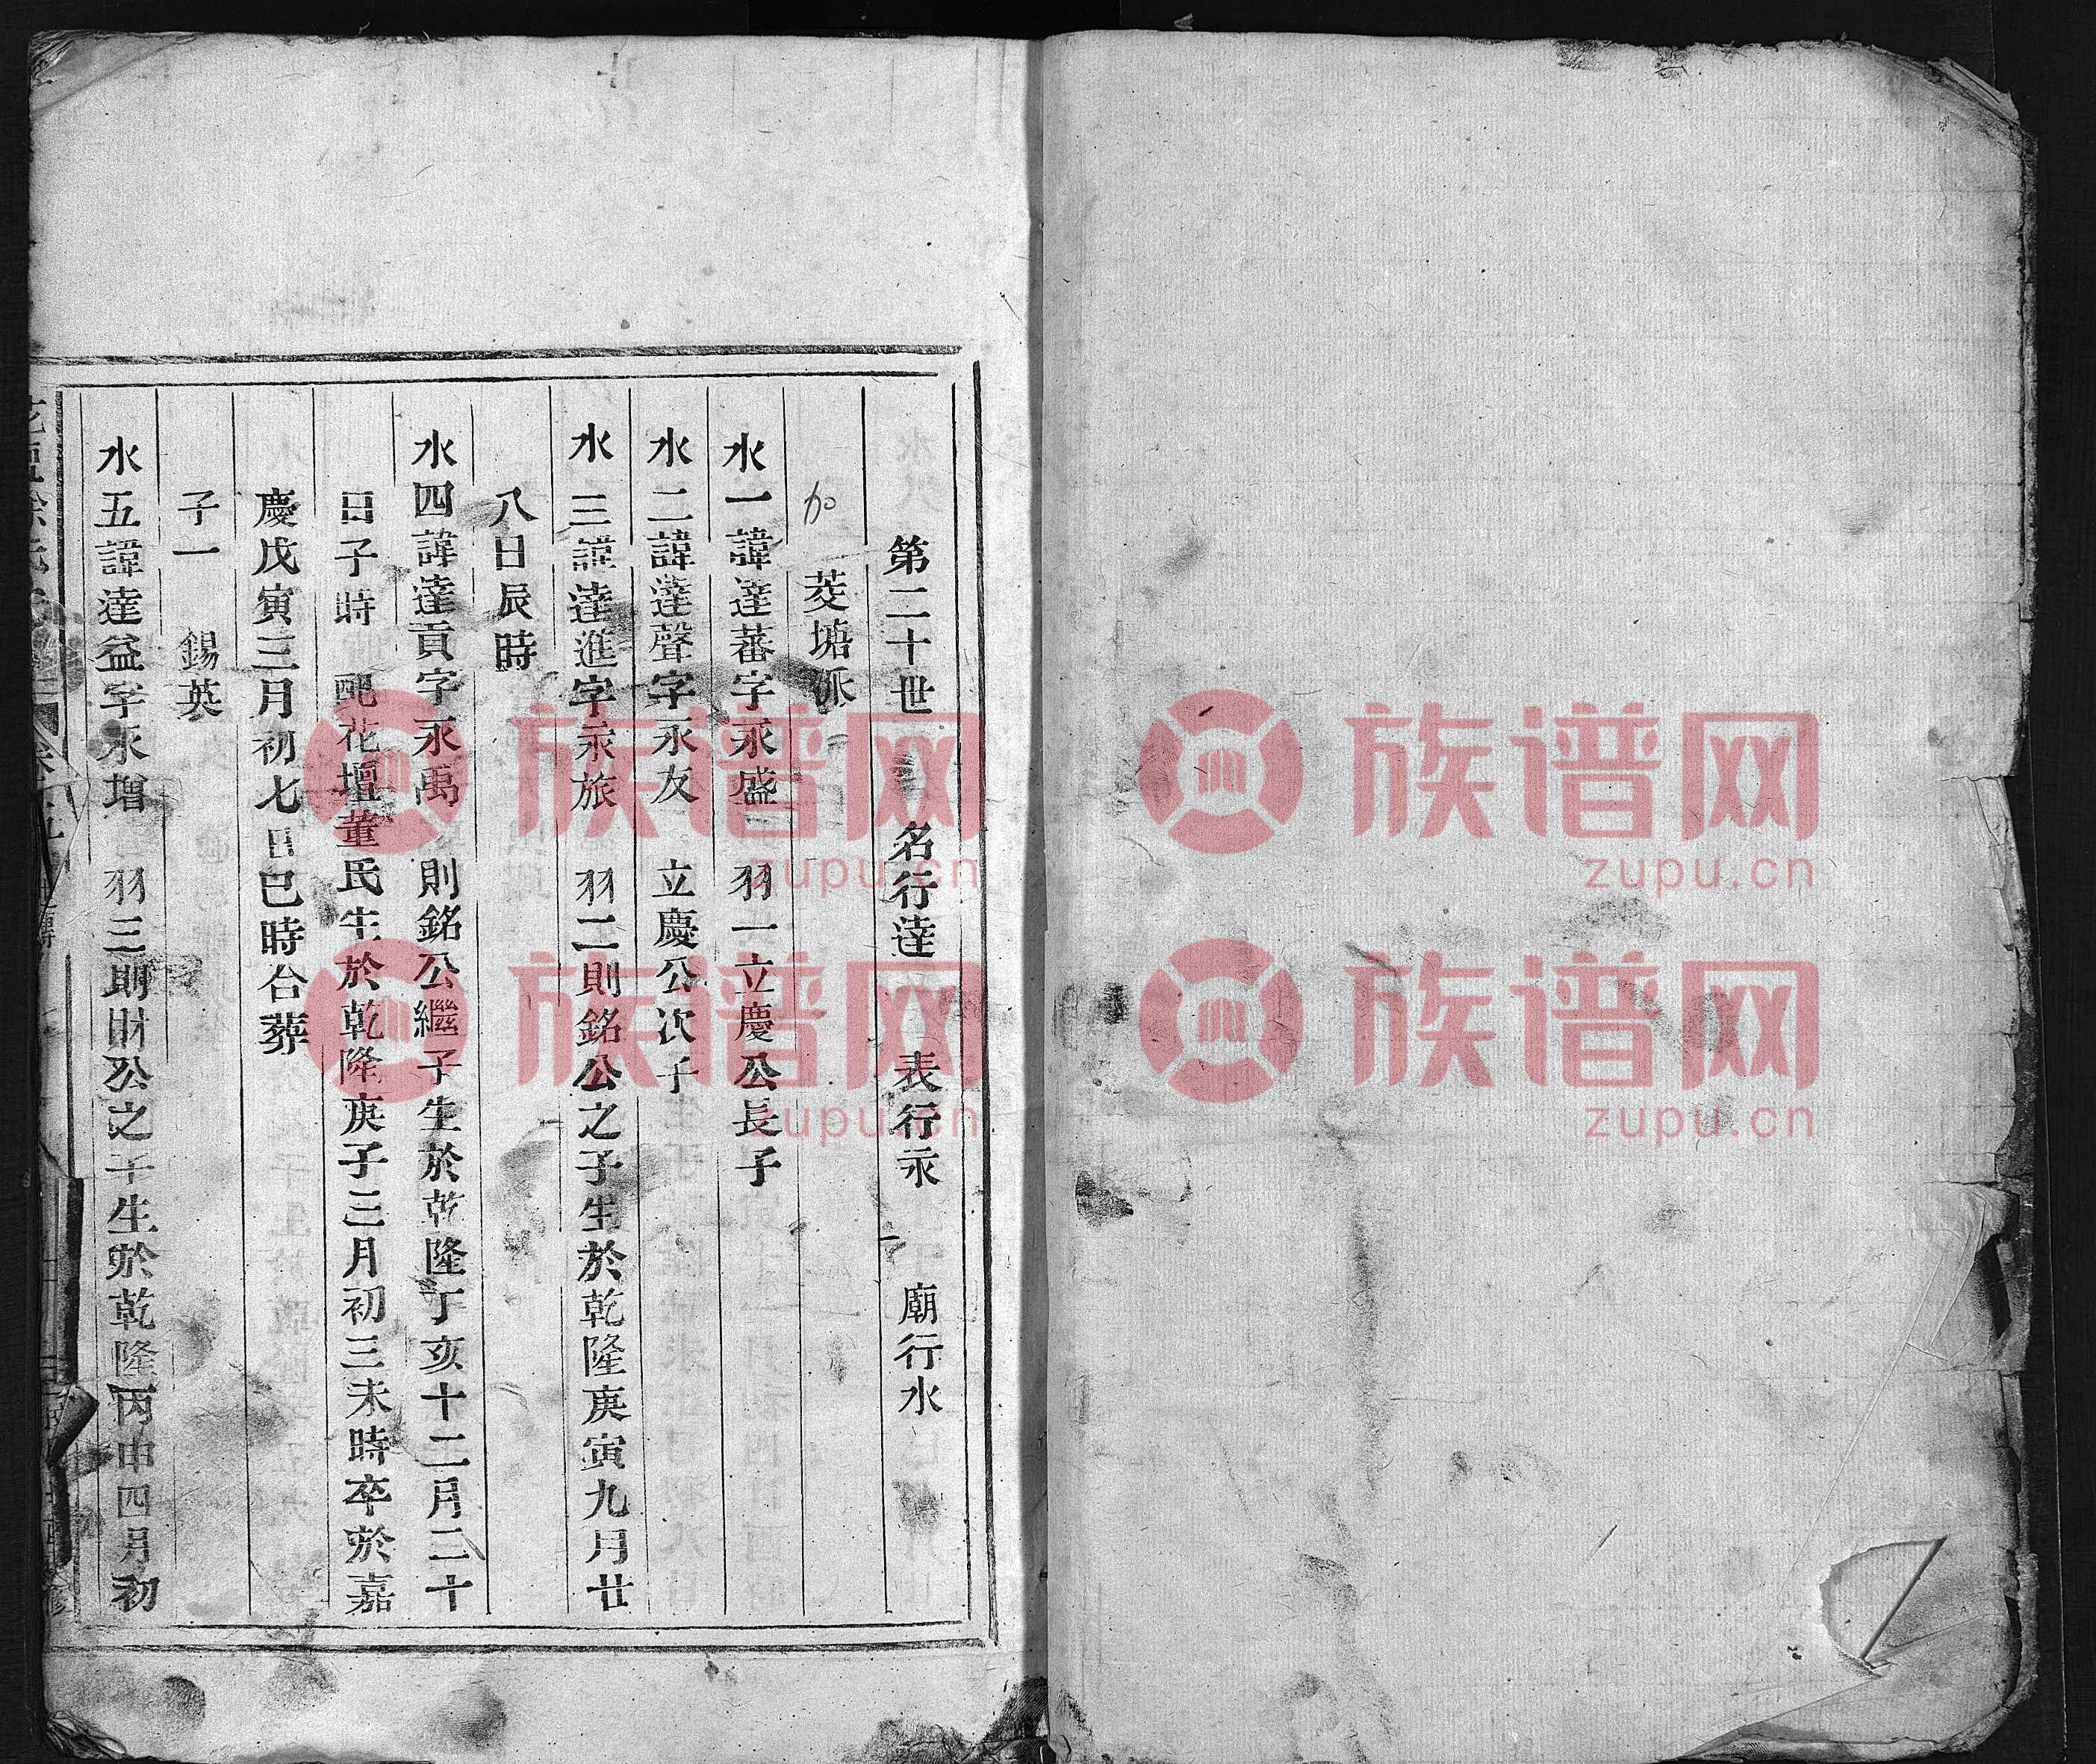 第二十世 名行達 表行永 廟行水
菱塘派
水一諱達蕃字永盛 羽一立慶公長子
水二諱達聲字永友 立慶公次子
水三諱達進字永旅 羽二則銘公之子生於乾隆庚寅九月廿
八日辰時
水四諱達貢字永禹 則銘公繼子生於乾隆丁亥十二月二十
日子時 配花壇董氏生於乾隆庚子三月初三未時卒於嘉
慶戊寅三月初七日巳時合葬
子一 錫英
水五諱達益字永增 羽三則財公之子生於乾隆丙申四月初
族谱网
zupu.cn
族谱网
zupu.cn
族谱网
zupu.cn
族谱网
zupu.cn